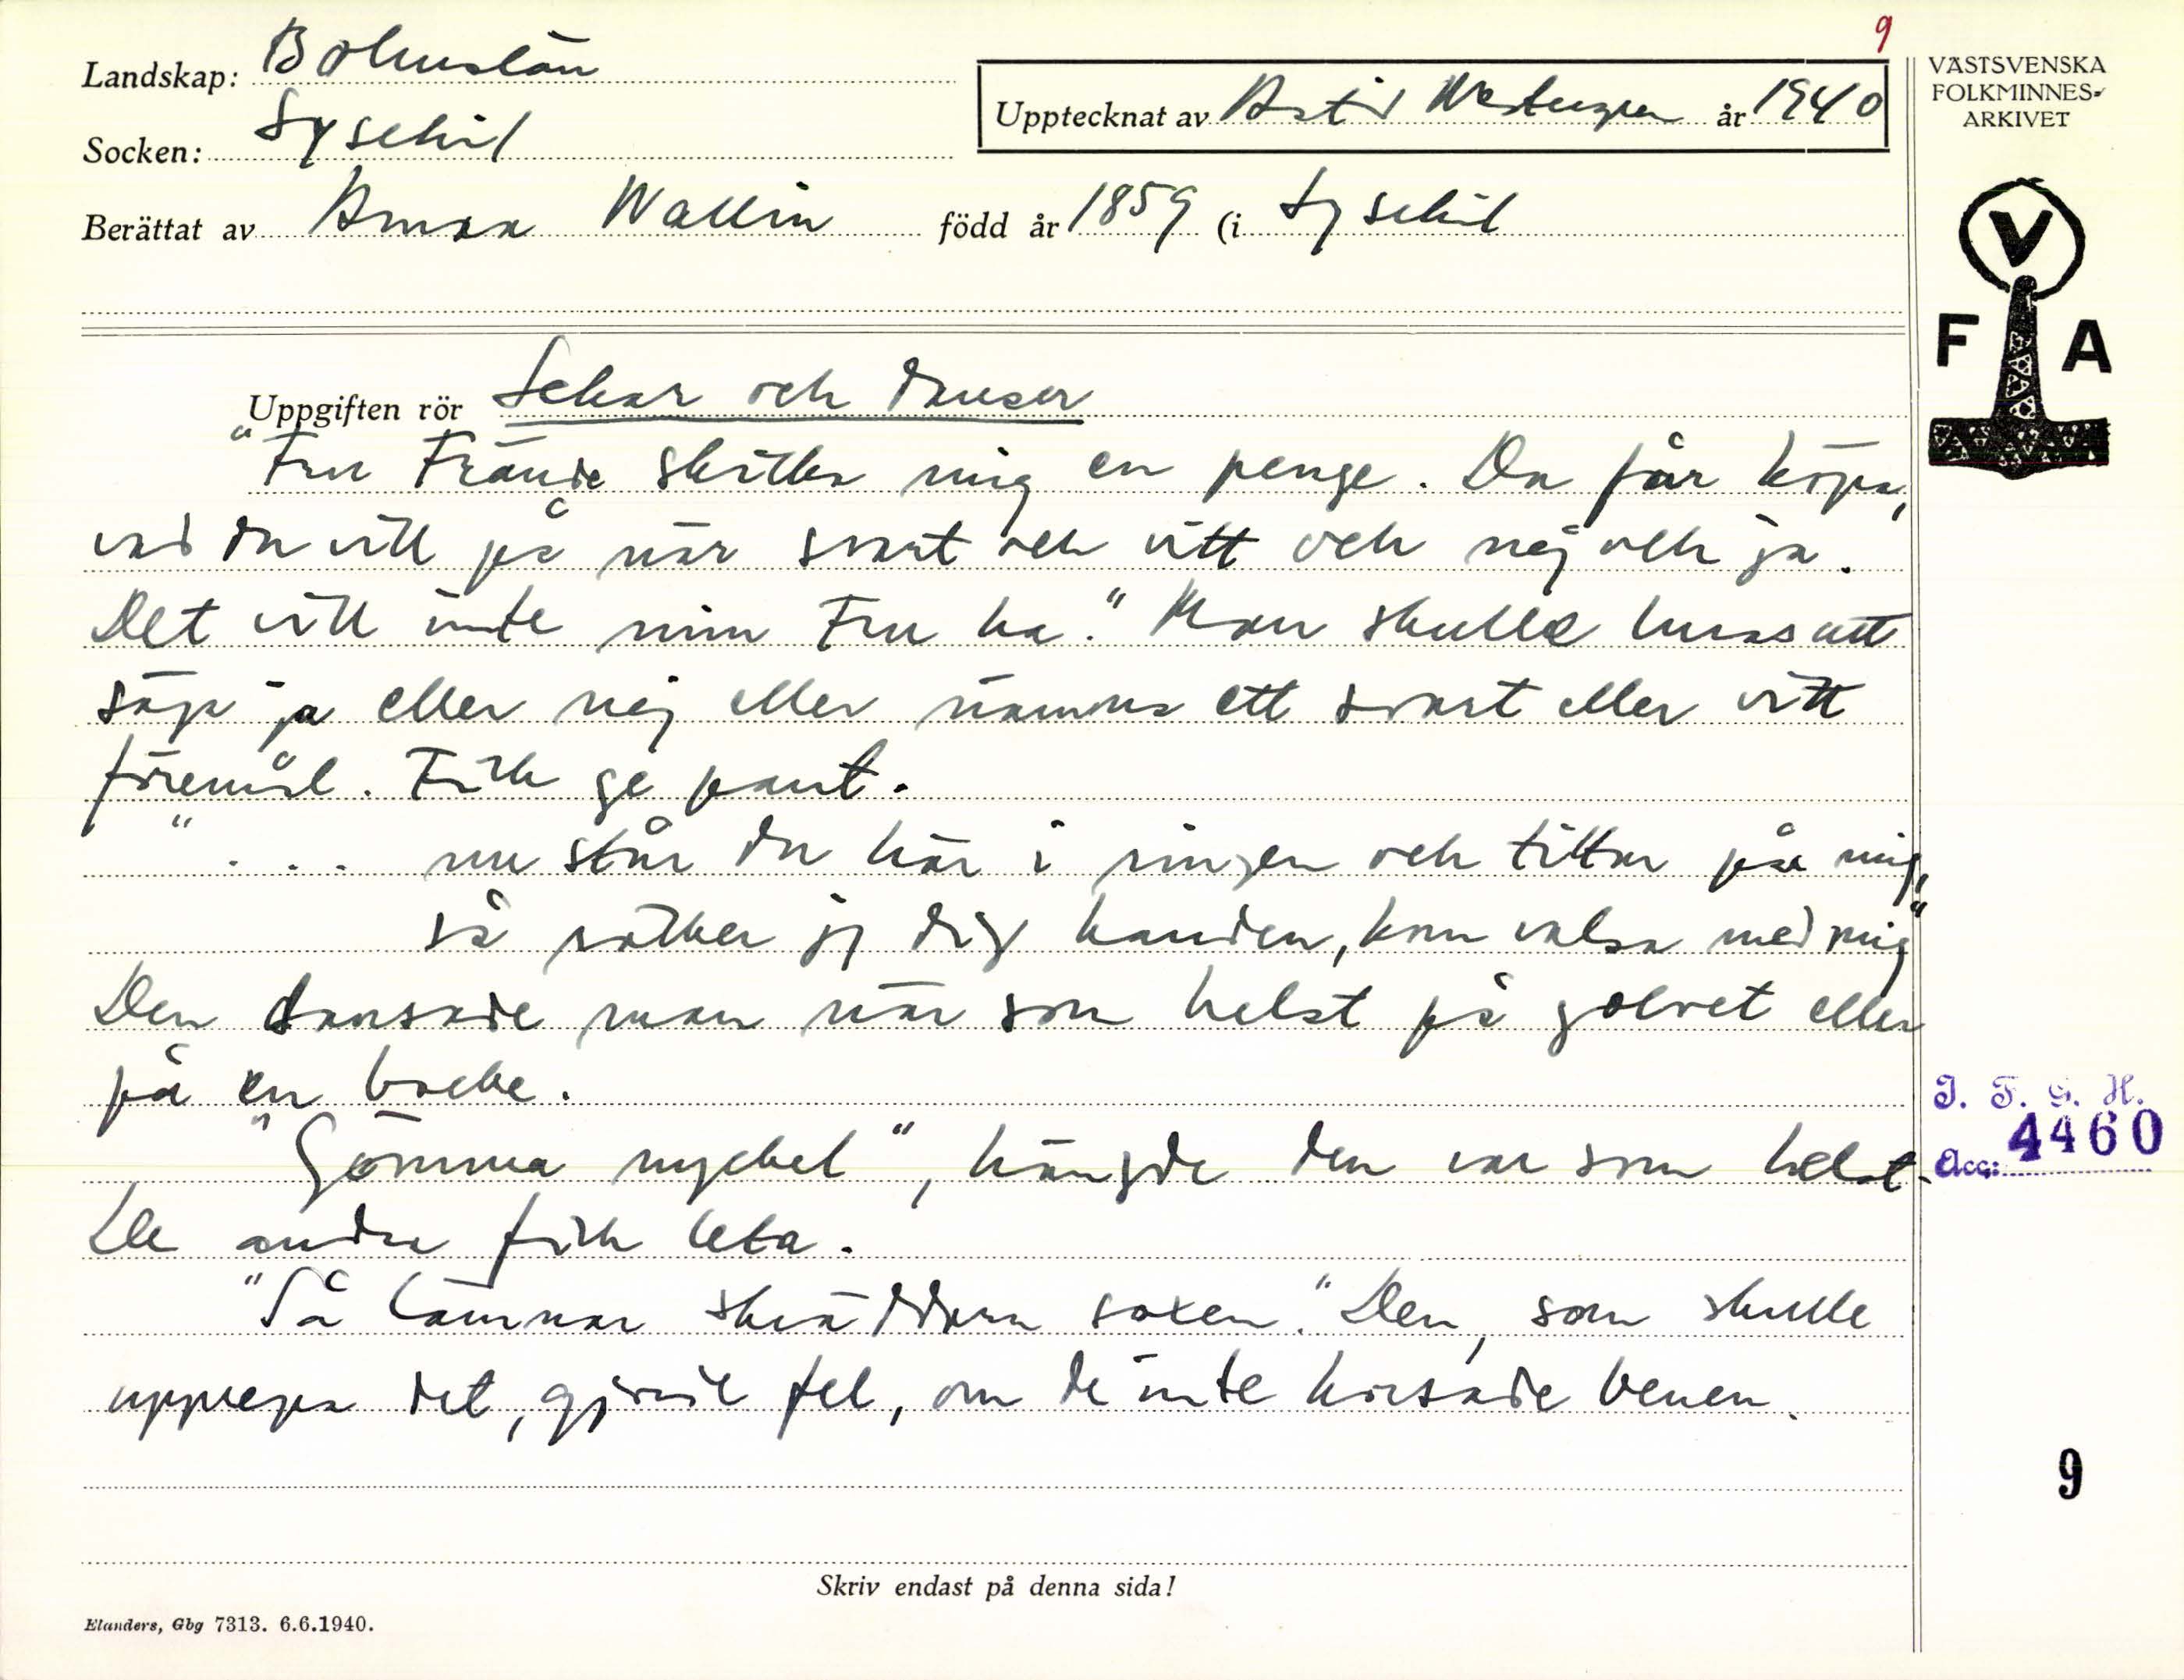 9
Landskap: Bohuslän
Socken: Lysekil
Upptecknat av Astrid Westergren år 1940
Berättat av Anna Wallin född år 1859 (i Lysekil
VÄSTSVENSKA
FOLKMINNES-
ARKIVET
V
F A
Uppgiften rör Lekar och danser
"Fru Frände skickar mig en penge. Du får köpa,
vad du vill på när svart och vitt och nej och ja.
Det vill inte min Fru ha." Man skulle luras att
säga ja eller nej eller nämna ett svart eller vitt
föremål. Fick ge pant.
" . . . nu står du här i ringen och tittar på mig,
så räcker jag dig handen, kom valsa med mig"
Den dansade man när som helst på golvet eller
på en backe.
"Gömma nyckel", hängde den var som helst.
De andra fick leta.
"Så lämnar skräddarn saxen." Den, som skulle
upprepa det, gjorde fel, om de inte korsade benen.
I. F. G. H.
Acc: 4460
9
Skriv endast på denna sida!
Elanders, Gbg 7313. 6.6.1940.